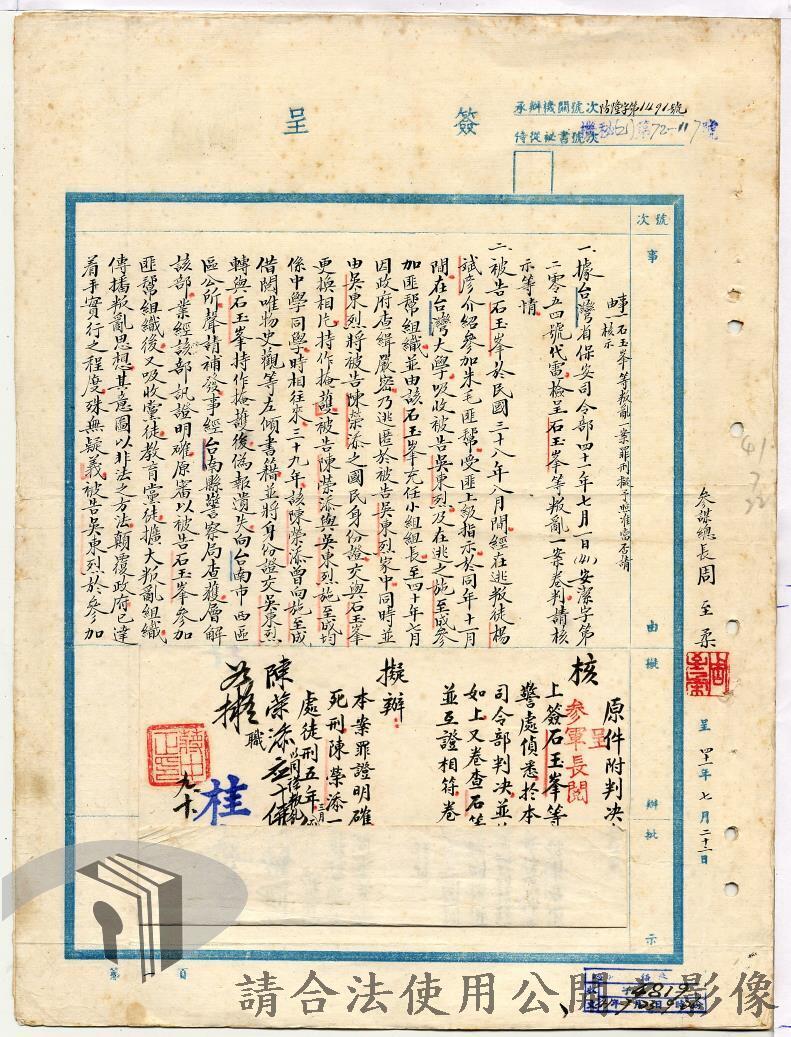 簽呈
承辦機關號次 防隆字第1491號
侍從祕書號次 機秘(乙)第72-117號
號次
事由
擬辦
批示
事由 一石玉峯等叛亂一案罪刑擬予照准當否請
核示
一、據台灣省保安司令部四十一年七月一日(41)安潔字第
二零五四號代電檢呈石玉峯等叛亂一案卷判請核
示等情
二、被告石玉峯於民國三十八年八月間經在逃叛徒楊
斌彥介紹參加朱毛匪幫受匪上級指示於同年十一月
間在台灣大學吸收被告吳東烈及在逃之施至成參
加匪幫組織並由該石玉峯充任小組組長至四十年六月
因政府查緝嚴密乃逃匿於被告吳東烈家中同時並
由吳東烈將被告陳榮添之國民身份證交與石玉峯
更換相片持作掩護被告陳榮添與吳東烈施至成均
係中學同學時相往來三十九年該陳榮添曾向施至成
借閱唯物史觀等左傾書籍並將身份證交吳東烈
轉與石玉峯持作掩護後偽報遺失向台南市西區
區公所聲請補發事經台南縣警察局查獲層解
該部業經該部訊證明確原審以被告石玉峯參加
匪幫組織後又吸收黨徒教育黨徒擴大叛亂組織
傳播叛亂思想其意圖以非法之方法顛覆政府已達
着手實行之程度殊無疑義被告吳東烈於參加
參謀總長周至柔
呈 四十一年七月二十二日
原件附判決
呈
參軍長閱
核
上簽石玉峯等
警處偵悉於本
司令部判決並
如上又卷查石等
並互證相符卷
擬辦
本案罪證明確
死刑陳榮添一
處徒刑五年
陳榮添
職
桂
九、十、
41
7
22
4819
第 頁
請合法使用公開影像